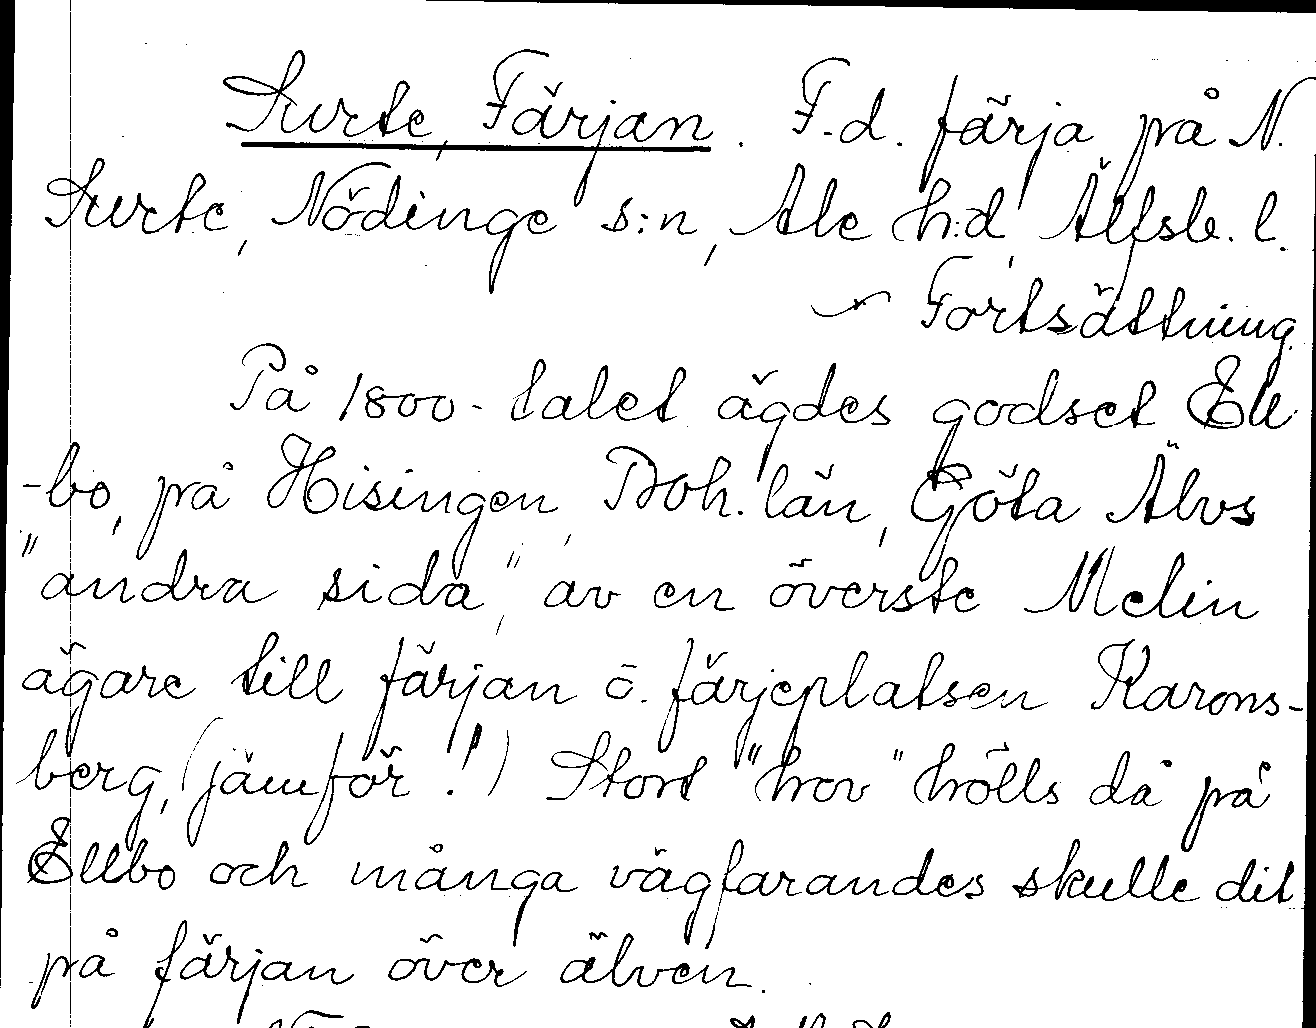 Surte, Färjan. F.d. färja på N.
Surte, Nödinge s:n, Ale h:d, Älfsb. l.
Fortsättning.
På 1800-talet ägdes godset Ell
-bo, på Hisingen, Boh. län, Göta Älvs
"andra sida", av en överste Melin
ägare till färjan o. färjeplatsen Karons-
berg, (jämför!) Stort "hov" hölls då på
Ellbo och många vägfarandes skulle dit
på färjan över älven.